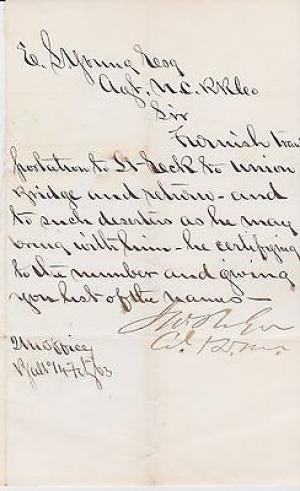 E. S. Young Esq
Agt. N.C. RR Co
Sir
Furnish tran
sportation to Lt Eck to Union
Bridge and return - and
to such deserters as he may
bring with him - he certifying
to the number and giving
you list of the names -
QM Office
Balto 14 Feby 63